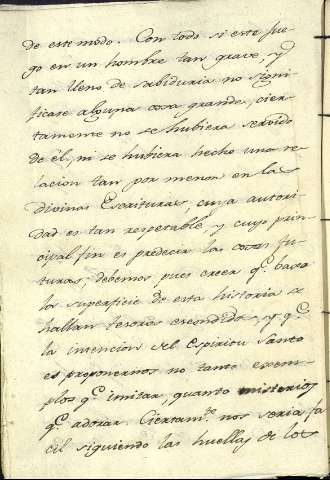 de este modo. Con todo si este fue-
go en un hombre tan grave, y
tan lleno de sabiduria no signi-
ficase alguna cosa grande, cier-
tamente no se hubiera servido
de él, ni se hubiera hecho una re-
lacion tan por menor en las
divinas Escrituras, cuya autori-
dad es tan respetable, y cuyo prin-
cipal fin es predecir las cosas fu-
turas, debemos pues creer q.e baxo
la superficie de esta historia se
hallan tesoros escondidos, y q.e
la intencion del Espiritu Santo
es proponernos no tanto exem-
plos q.e imitar, quanto misterios
q.e adorar. Ciertam.te nos seria fa
cil siguiendo las huellas de los